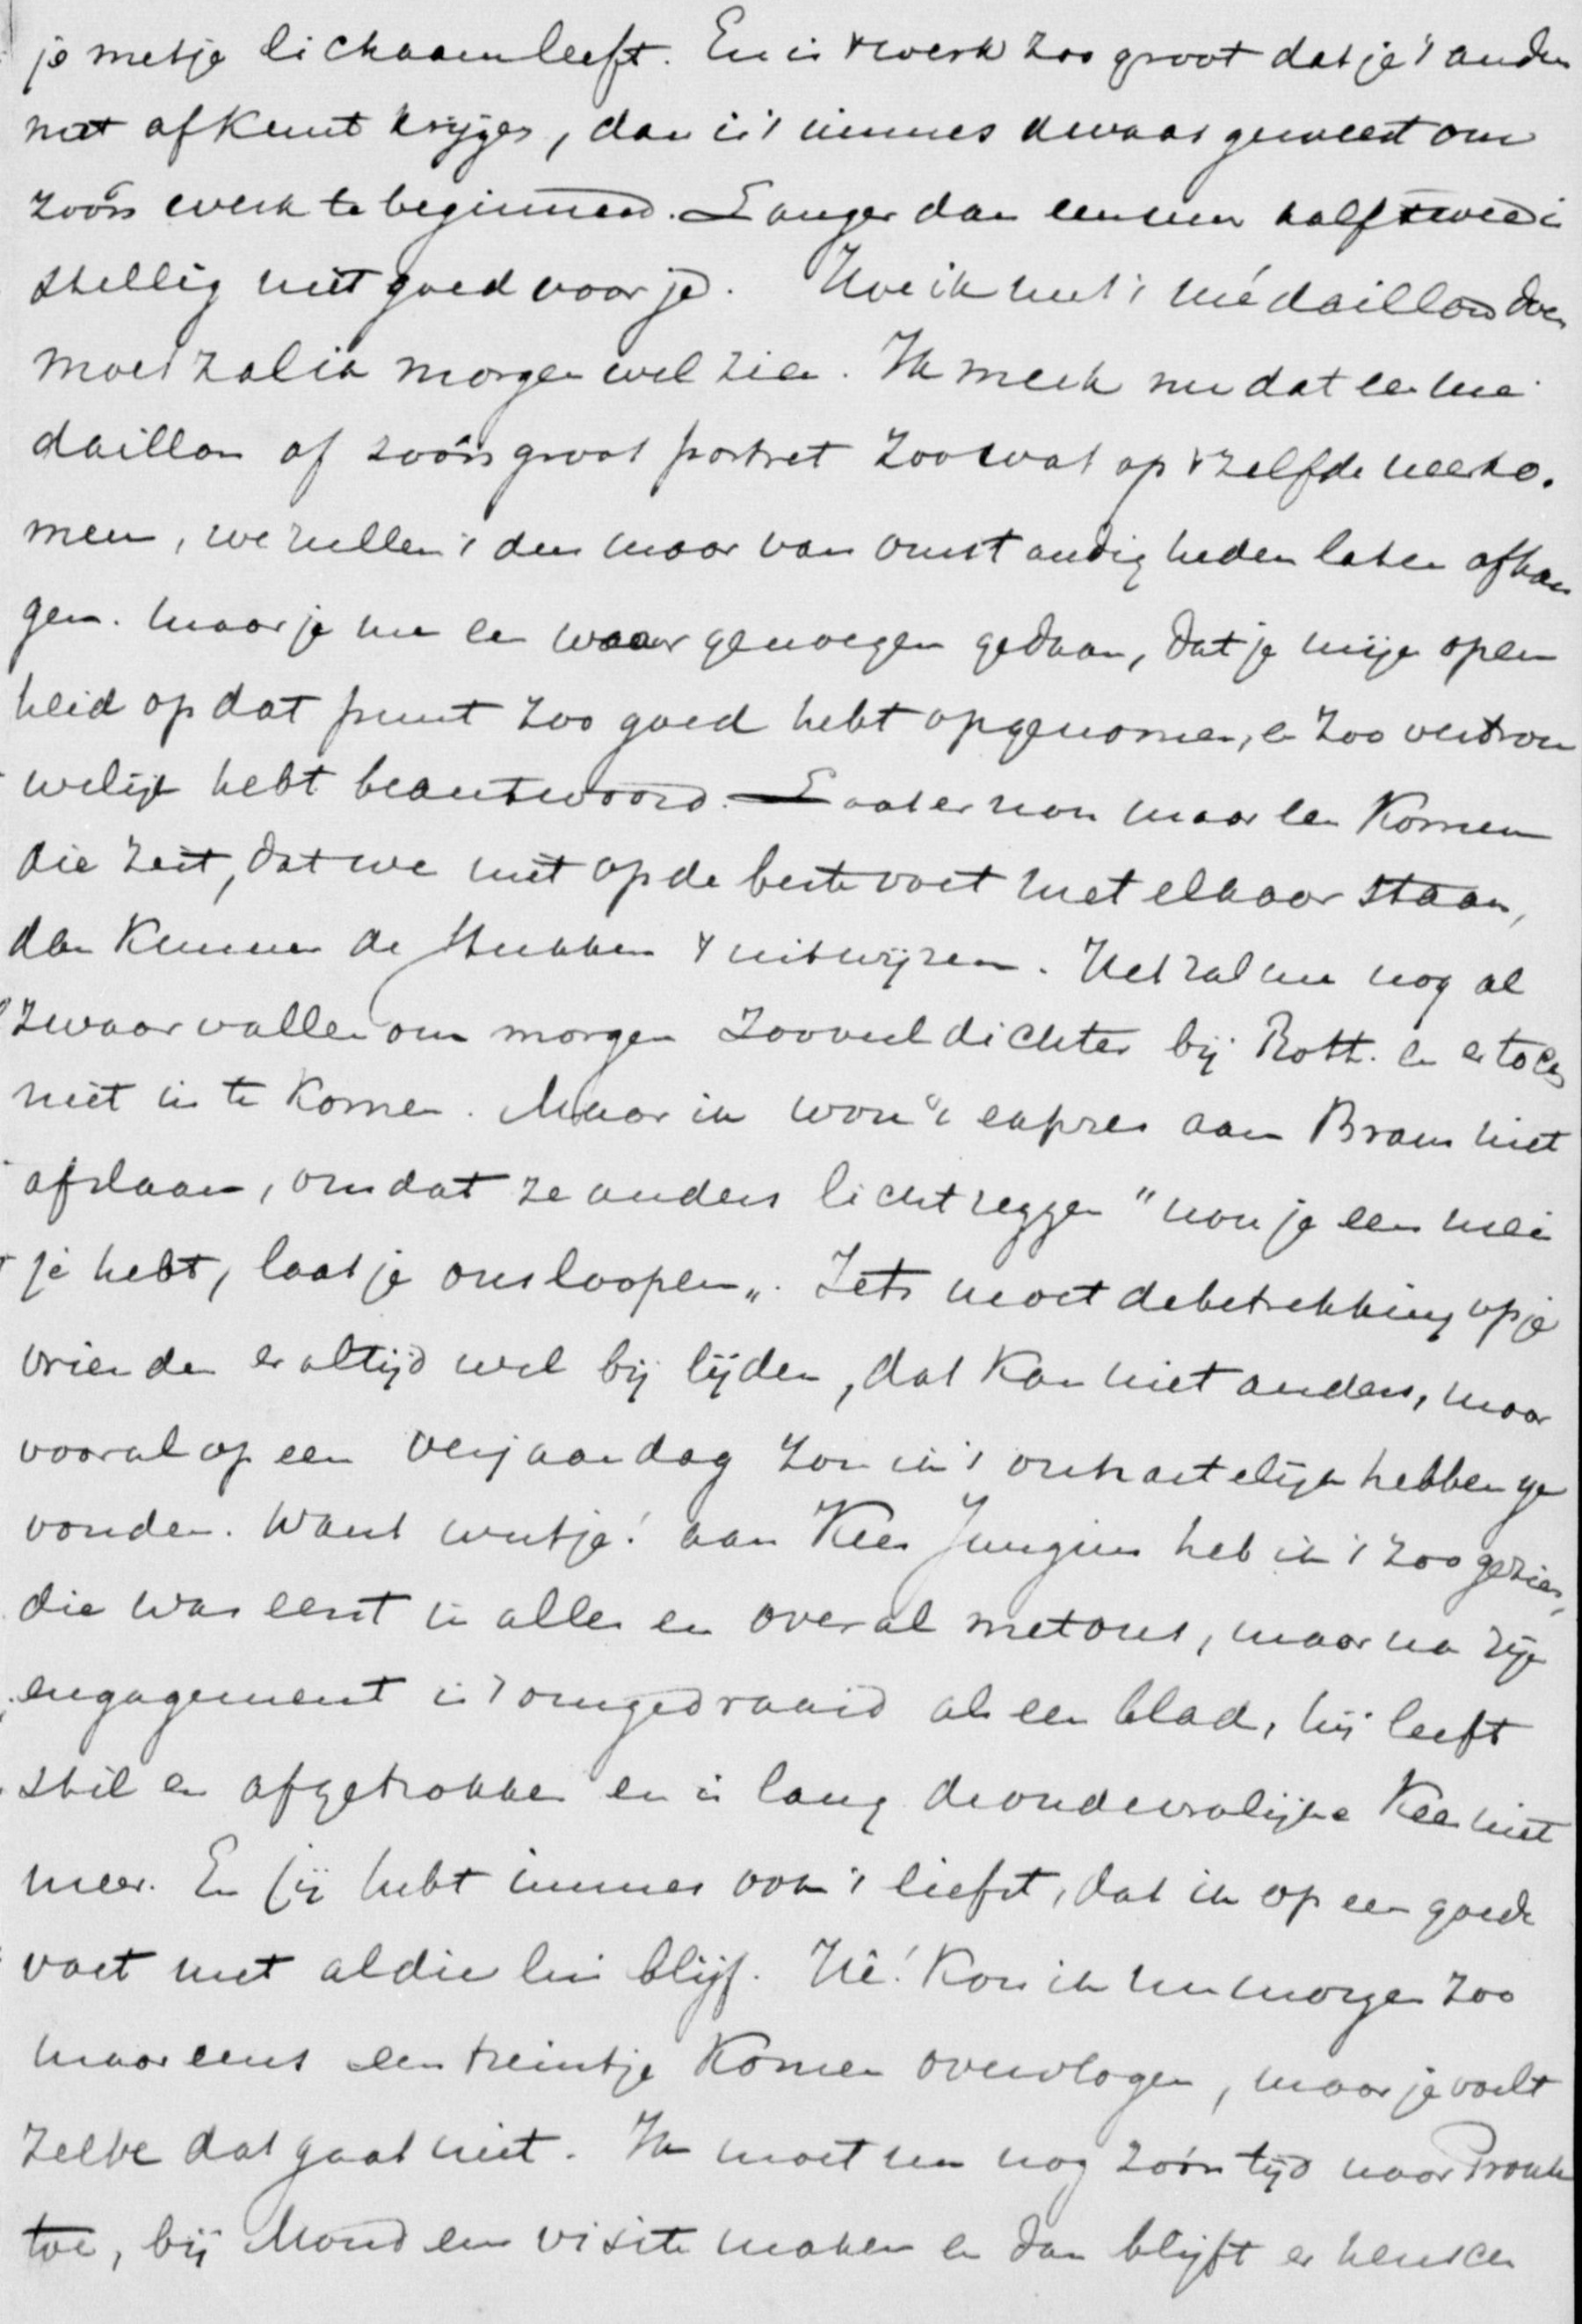 je met je lichaam leeft. En is 't werk zoo groot dat je 't anders
niet af kunt krijgen, dan is 't immers dwaas geweest om
zoo'n werk te beginnen. Langer dan een uur half twee is
stellig niet goed voor je. Hoe ik met 't médaillon doen
moet zal ik morgen wel zien. Ik merk nu dat een mé
daillon of zoo'n groot portret zoowat op 't zelfde neerko.
men, we zullen 't dus maar van omstandigheden laten afhan
gen. Maar je me een waar genoegen gedaan, dat je mijn open
heid op dat punt zoo goed hebt opgenomen, en zoo vertrou
welijk hebt beantwoord. Laat er nou maar een komen
die zeit, dat we niet op de beste voet met elkaar staan,
dan kunnen de stukken 't uitwijzen. Het zal me nog al
zwaar vallen om morgen zooveel dichter bij Rott. en er toch
niet in te komen. Maar ik wou 't expres aan Bram niet
afslaan, omdat ze anders licht zeggen "nou je een mei
je hebt, laat je ons loopen". Iets moet de betrekking op je
vrienden er altijd wel bij lijden, dat kan niet anders, maar
vooral op een verjaardag zou ik 't onhartelijk hebben ge
vonden. Want wutje! aan Kees Jungius heb ik 't zoo gezien,
die was eerst in alles en overal met ons, maar na zijn
engagement is 't omgedraaid als een blad, hij leeft
stil en afgetrokken en is lang de ouderwolijke Kees niet
meer. En jij hebt immers ook 't liefst, dat ik op een goede
voet met al die lui blijf. Hè! Kon ik nu morgen zoo
maar eens een treintje komen overvlogen, maar je voelt
zelve dat gaat niet. Ik moet nu nog zóó'n tijd naar Pronk
toe, bij Mond een visite maken en dan blijft er heusch